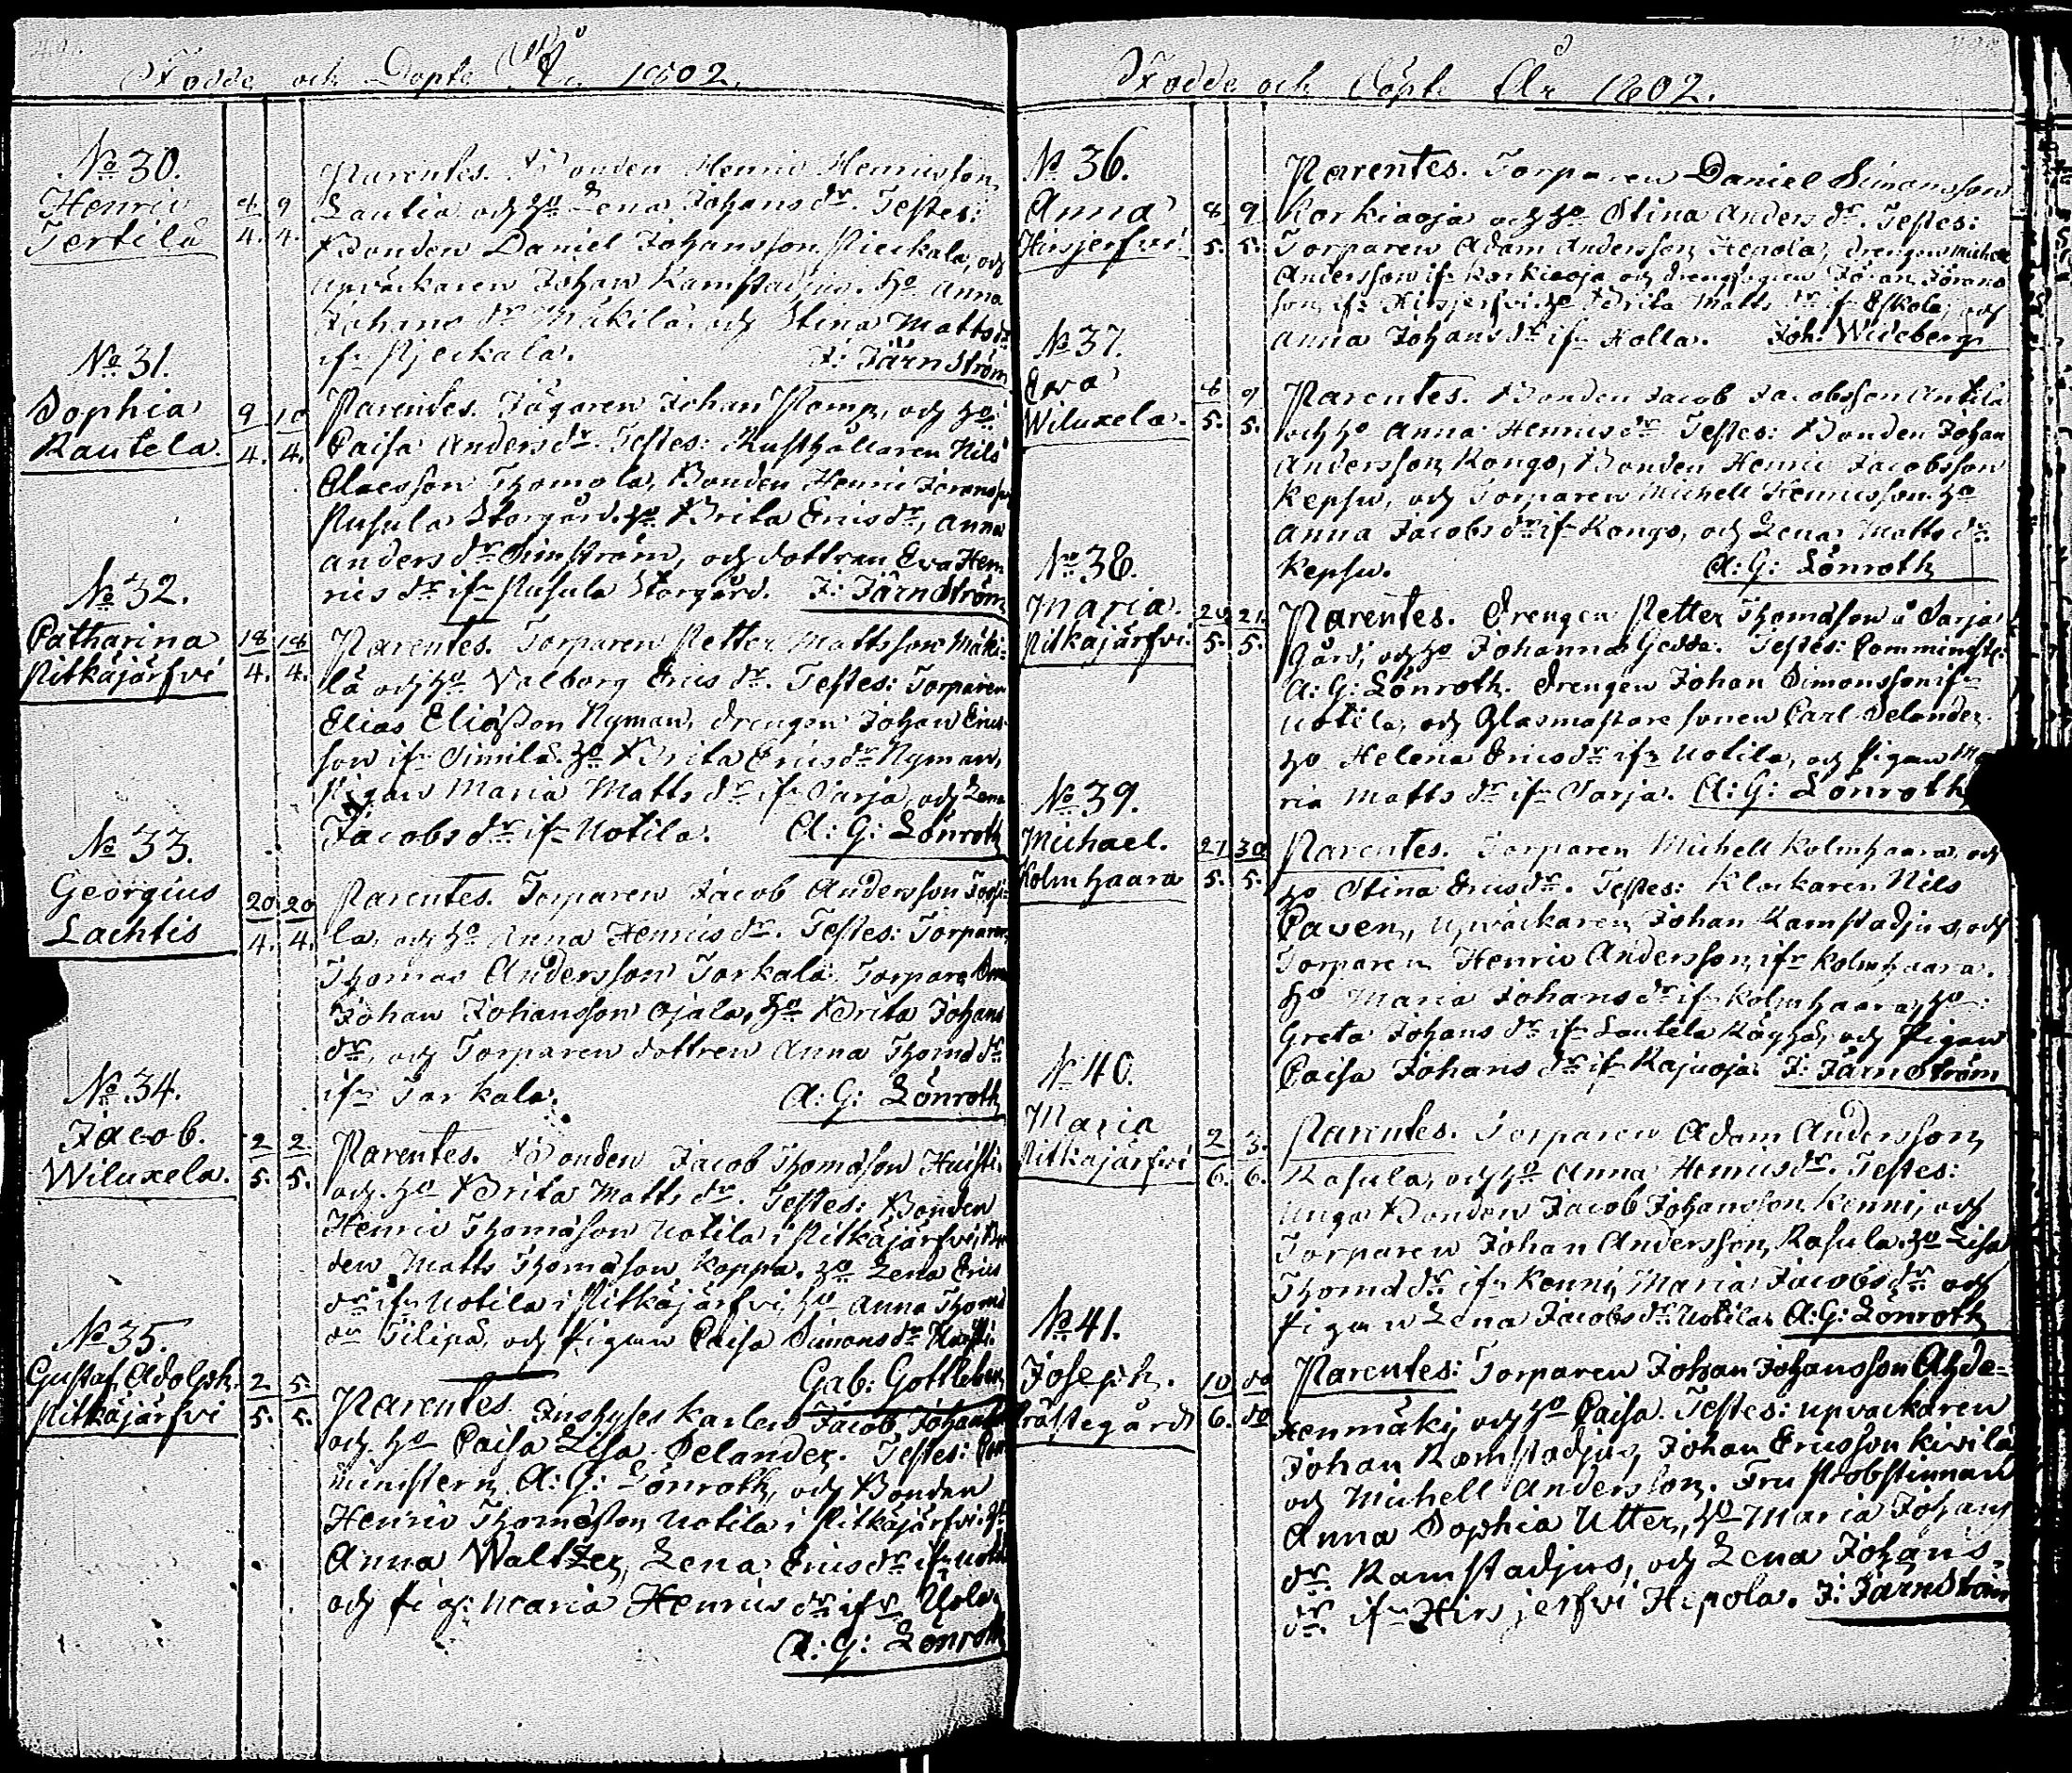 Födde och Döpte År 1802.
No 30.
Henric
Tertilä
4/4. 9/4.
Parentes. Bonden Henric Henricsson
Lautia och ho Lena Johans dr. Testes:
Bonden Daniel Johansson Pieckala, och
upväckaren Johan Ramstadjus. ho Anna
Johans dr Mäkilä, och Stina Matts dr
ifr Pieckala.
J: Järnström
No 31.
Sophia
Rautela.
9/4. 10/4.
Parentes. Jägaren Johan Pomp, och ho
Caisa Anders dr. Testes: Rusthållaren Nils
Claesson Thomola, Bonden Henric Jöransson
Pusula Storgård. ho Brita Erics dr, Anna
Anders dr Simström, och dottren Eva Hen
rics dr ifr Pusula Storgård. J: Järnström
No 32.
Catharina
Pitkäjärfvi
18/4. 18/4.
Parentes. Torparen Petter Mattsson Mäki-
lä och ho Valborg Erics dr. Testes: Torparen
Elias Eliasson Nyman, drengen Johan Erics
son ifr Simila. ho Brita Erics dr Nyman,
Pigan Maria Matts dr ifr Sarja, och Lena
Jacobs dr ifr Uotila. A: G: Lönroth
No 33.
Georgius
Lachtis
20/4. 20/4.
Parentes. Torparen Jacob Andersson
la, och ho Anna Henrics dr. Testes: Torparen
Thomas Andersson Torkala. Torpare
Johan Johansson Ojala, ho Brita Johans
dr, och Torparen dottren Anna Thoms dr
ifr Torkala. A: G: Lönroth
No 34.
Jacob.
Wiluxela.
2/5. 2/5.
Parentes. Bonden Jacob Thomasson Huisti
och ho Brita Matts dr. Testes: Bonden
Henric Thomasson Uotila i Pitkäjärfvi, Bon
den Matts Thomasson Koppa. ho Lena Erics
dr ifr Uotila i Pitkäjärfvi, ho Anna Thoms
dr Filipä, och Pigan Caisa Simons dr
Gab: Gottleben
No 35.
Gustaf Adolph.
Pitkäjärfvi
2/5. 5/5.
Parentes. Inhyses Karlen Jacob Johans
och ho Caisa Lisa Selander. Testes: Com
ministern A: G: Lönroth, och Bonden
Henric Thomasson Uotila i Pitkäjärfvi. ho
Anna Waltzer, Lena Erics dr ifr Uotila
och Pig: Maria Henrics dr ifr
A: G: Lönroth
Födde och Döpte År 1802.
No 36.
Anna
Hirsjerfvi
8/5. 9/5.
Parentes. Torparen Daniel Simonsson
Korkiaoja och ho Stina Anders dr. Testes:
Torparen Adam Andersson Hepola, drengen Michell
Andersson ifr Korkiaoja och drengen Jöran Jörans
son ifr Hirsjerfvi. ho Brita Matts dr ifr Eskola, och
Anna Johans dr ifr Kolla. Joh: Wideberg
No 37.
Eva
Wiluxela.
8/5. 9/5.
Parentes. Bonden Jacob Jacobsson Antila
och ho Anna Henrics dr Testes: Bonden Johan
Andersson Kongo, Bonden Henric Jacobsson
Kepsu, och Torparen Michell Henricsson. ho
Anna Jacobs dr ifr Kongo, och Lena Matts dr
Kepsu. A: G: Lönroth
No 38.
Maria.
Pitkäjärfvi.
20/5. 21/5.
Parentes. Drengen Petter Thomasson å Sarja
Gård, och ho Johanna Gedda. Testes: Comminist:
A: G: Lönroth. Drengen Johan Simonsson ifr
Uotila, och Glasmästare sonen Carl Selander.
ho Helena Erics dr ifr Uotila, och Pigan Ma
ria Matts dr ifr Sarja. A: G: Lönroth
No 39.
Michael.
Kolmhaara
27/5. 30/5.
Parentes. Torparen Michell Kolmhaara, och
ho Stina Erics dr. Testes: Klockaren Nils
Paven, upväckaren Johan Ramstadjus, och
Torparen Henric Andersson ifr Kolmhaara.
ho Maria Johans dr ifr Kolmhaara, ho
Greta Johans dr ifr Lautela Käyhä, och Pigan
Caisa Johans dr ifr Kajuoja. J: Järnström
No 40.
Maria
Pitkäjärfvi
2/6. 3/6.
Parentes. Torparen Adam Andersson
Rasula, och ho Anna Henrics dr. Testes:
unga Bonden Jacob Johansson Kenni, och
Torparen Johan Andersson Rasula. ho Lisa
Thoms dr ifr Kenni, Maria Jacobs dr och
Pigan Lena Jacobs dr Uotila. A: G: Lönroth
No 41.
Joseph.
Prästegårds
10/6. do/do
Parentes: Torparen Johan Johansson Ahde-
kenmäki, och ho Caisa. Testes: upväckaren
Johan Ramstadjus, Johan Ericsson Kivilä
och Michell Andersson. Fru Probstinnan
Anna Sophia Utter, ho Maria Johans
dr. Ramstadjus, och Lena Johans-
dr. ifr Hirsjerfvi Hepola. J: Järnström